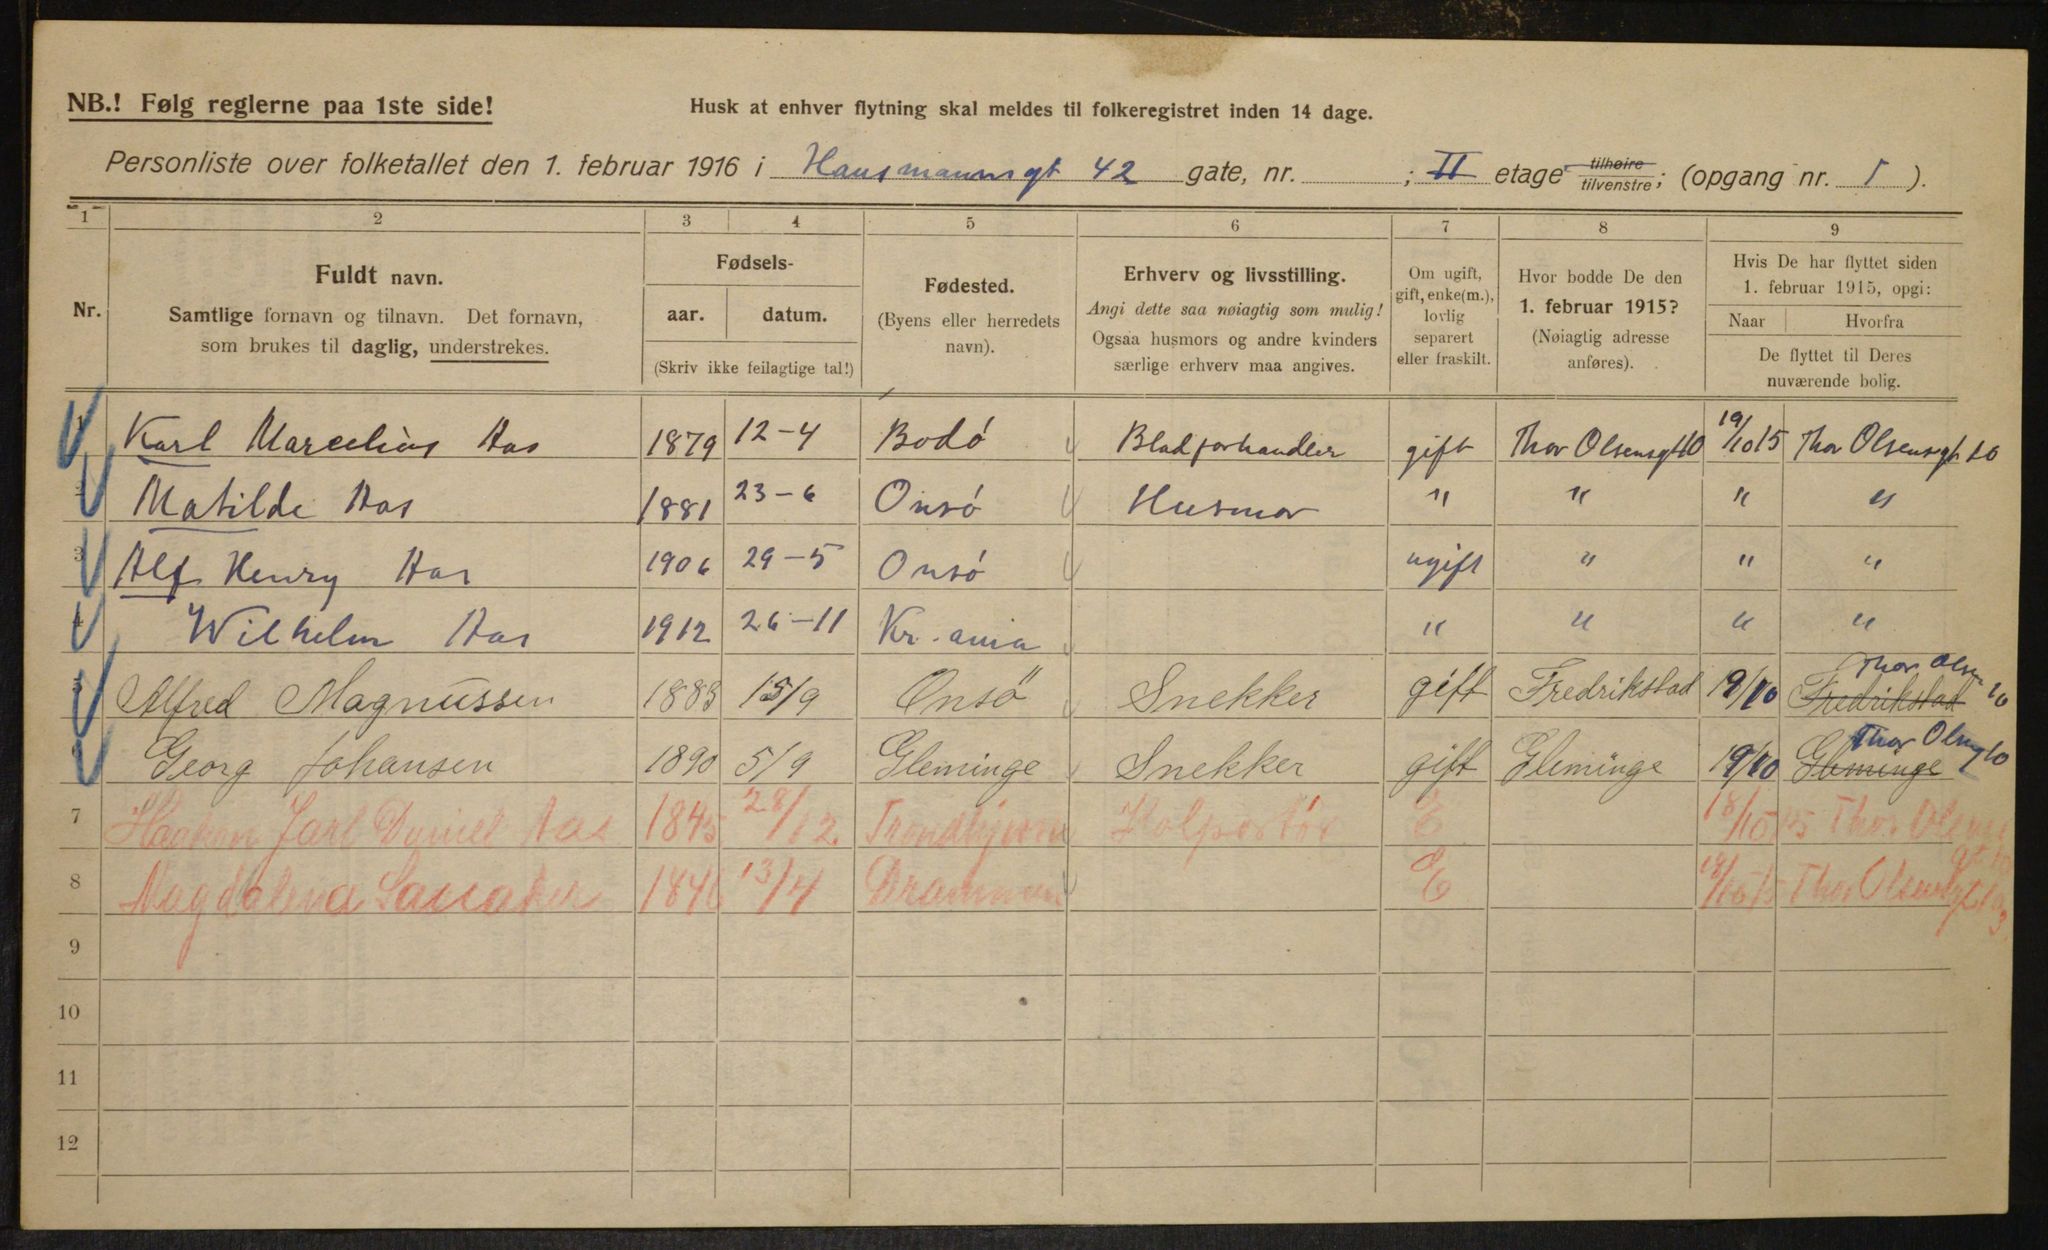 NB.! Følg reglerne paa 1ste side!
Husk at enhver flytning skal meldes til folkeregistret inden 14 dage.
Personliste over folketallet den 1. februar 1916 i Hausmannsgt 42 gate, nr. ; II etage tilhøire tilvenstre; (opgang nr. 1 ).
1 2 3 4 5 6 7 8 9
Nr.
Fuldt navn.
Samtlige fornavn og tilnavn. Det fornavn,
som brukes til daglig, understrekes.
Fødsels-
aar. datum.
(Skriv ikke feilagtige tal!)
Fødested.
(Byens eller herredets
navn).
Erhverv og livsstilling.
Angi dette saa nøiagtig som mulig!
Ogsaa husmors og andre kvinders
særlige erhverv maa angives.
Om ugift,
gift, enke(m.),
lovlig
separert
eller fraskilt.
Hvor bodde De den
1. februar 1915?
(Nøiagtig adresse
anføres).
Hvis De har flyttet siden
1. februar 1915, opgi:
Naar Hvorfra
De flyttet til Deres
nuværende bolig.
1 Karl Marcelius Aas 1879 12-4 Bodó Bladforhandler gift Thor Olsensgt 10 19/10 15 Thor Olsensgt 10
2 Matilde Aas 1881 23-6 Onsó Husmor " " " "
3 Alf Henry Aas 1906 29-5 Onsó ugift " " "
4 Wilhelm Aas 1912 26-11 Kr.ania " " " "
5 Alfred Magnussen 1883 15/9 Onsö Snekker gift Fredrikstad 19/10 Fredrikstad Thor Olsen 10
6 Georg Johansen 1890 5/9 Gleminge Snekker gift Gleminge 19/10 Gleminge Thor Olsengt 10
7 Haakon Jarl Daniel Aas 1845 28/12. Trondhjem Kolportör E 18/10 15 Thor Olsens gt 10
8 Magdalena 1846 13/4 Drammen E 18/10 15 Thor Olsensgt 10
9
10
11
12